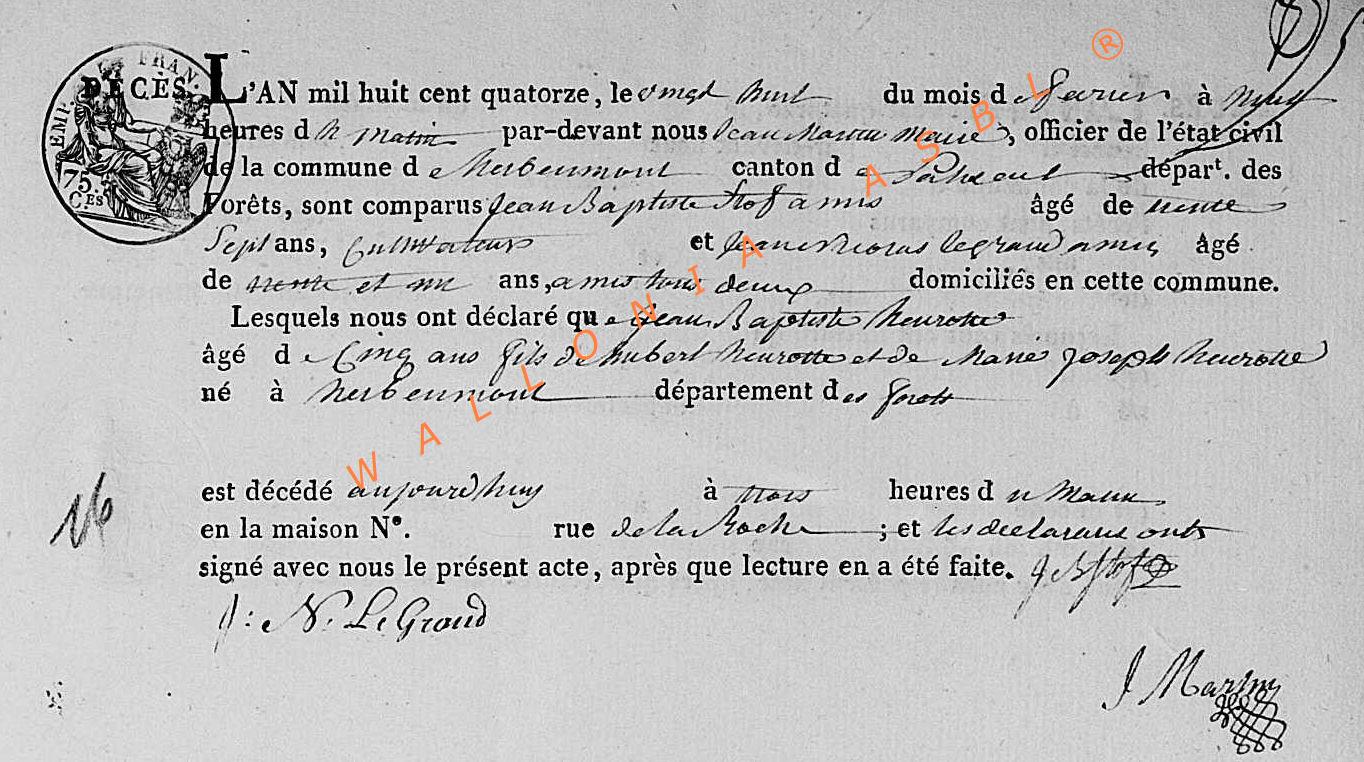 DÉCÈS.
EMP. FRAN.
75.
C.ES
L'AN mil huit cent quatorze, le vingt huit du mois de fevrier à neuf
heures du matin par-devant nous Jean Martin Maire, officier de l'état civil
de la commune de herbeumont canton de Paliseul dépar.t des
Forêts, sont comparus Jean Baptiste Stof amis âgé de trente
Sept ans, Cultivateur et Jean Nicolas legrand amis âgé
de trente et un ans, amis tous deux domiciliés en cette commune.
Lesquels nous ont déclaré que Jean Baptiste heurotte
âgé de Cinq ans fils de hubert heurotte et de Marie joseph heurotte
né à herbeumont département des forets
est décédé aujourdhuy à trois heures du Matin
en la maison N°. rue de la Roche ; et les declarans onts
signé avec nous le présent acte, après que lecture en a été faite. J B Stof
J: N. Le Grand
16
J Martin
WALLONIA ASBL ®